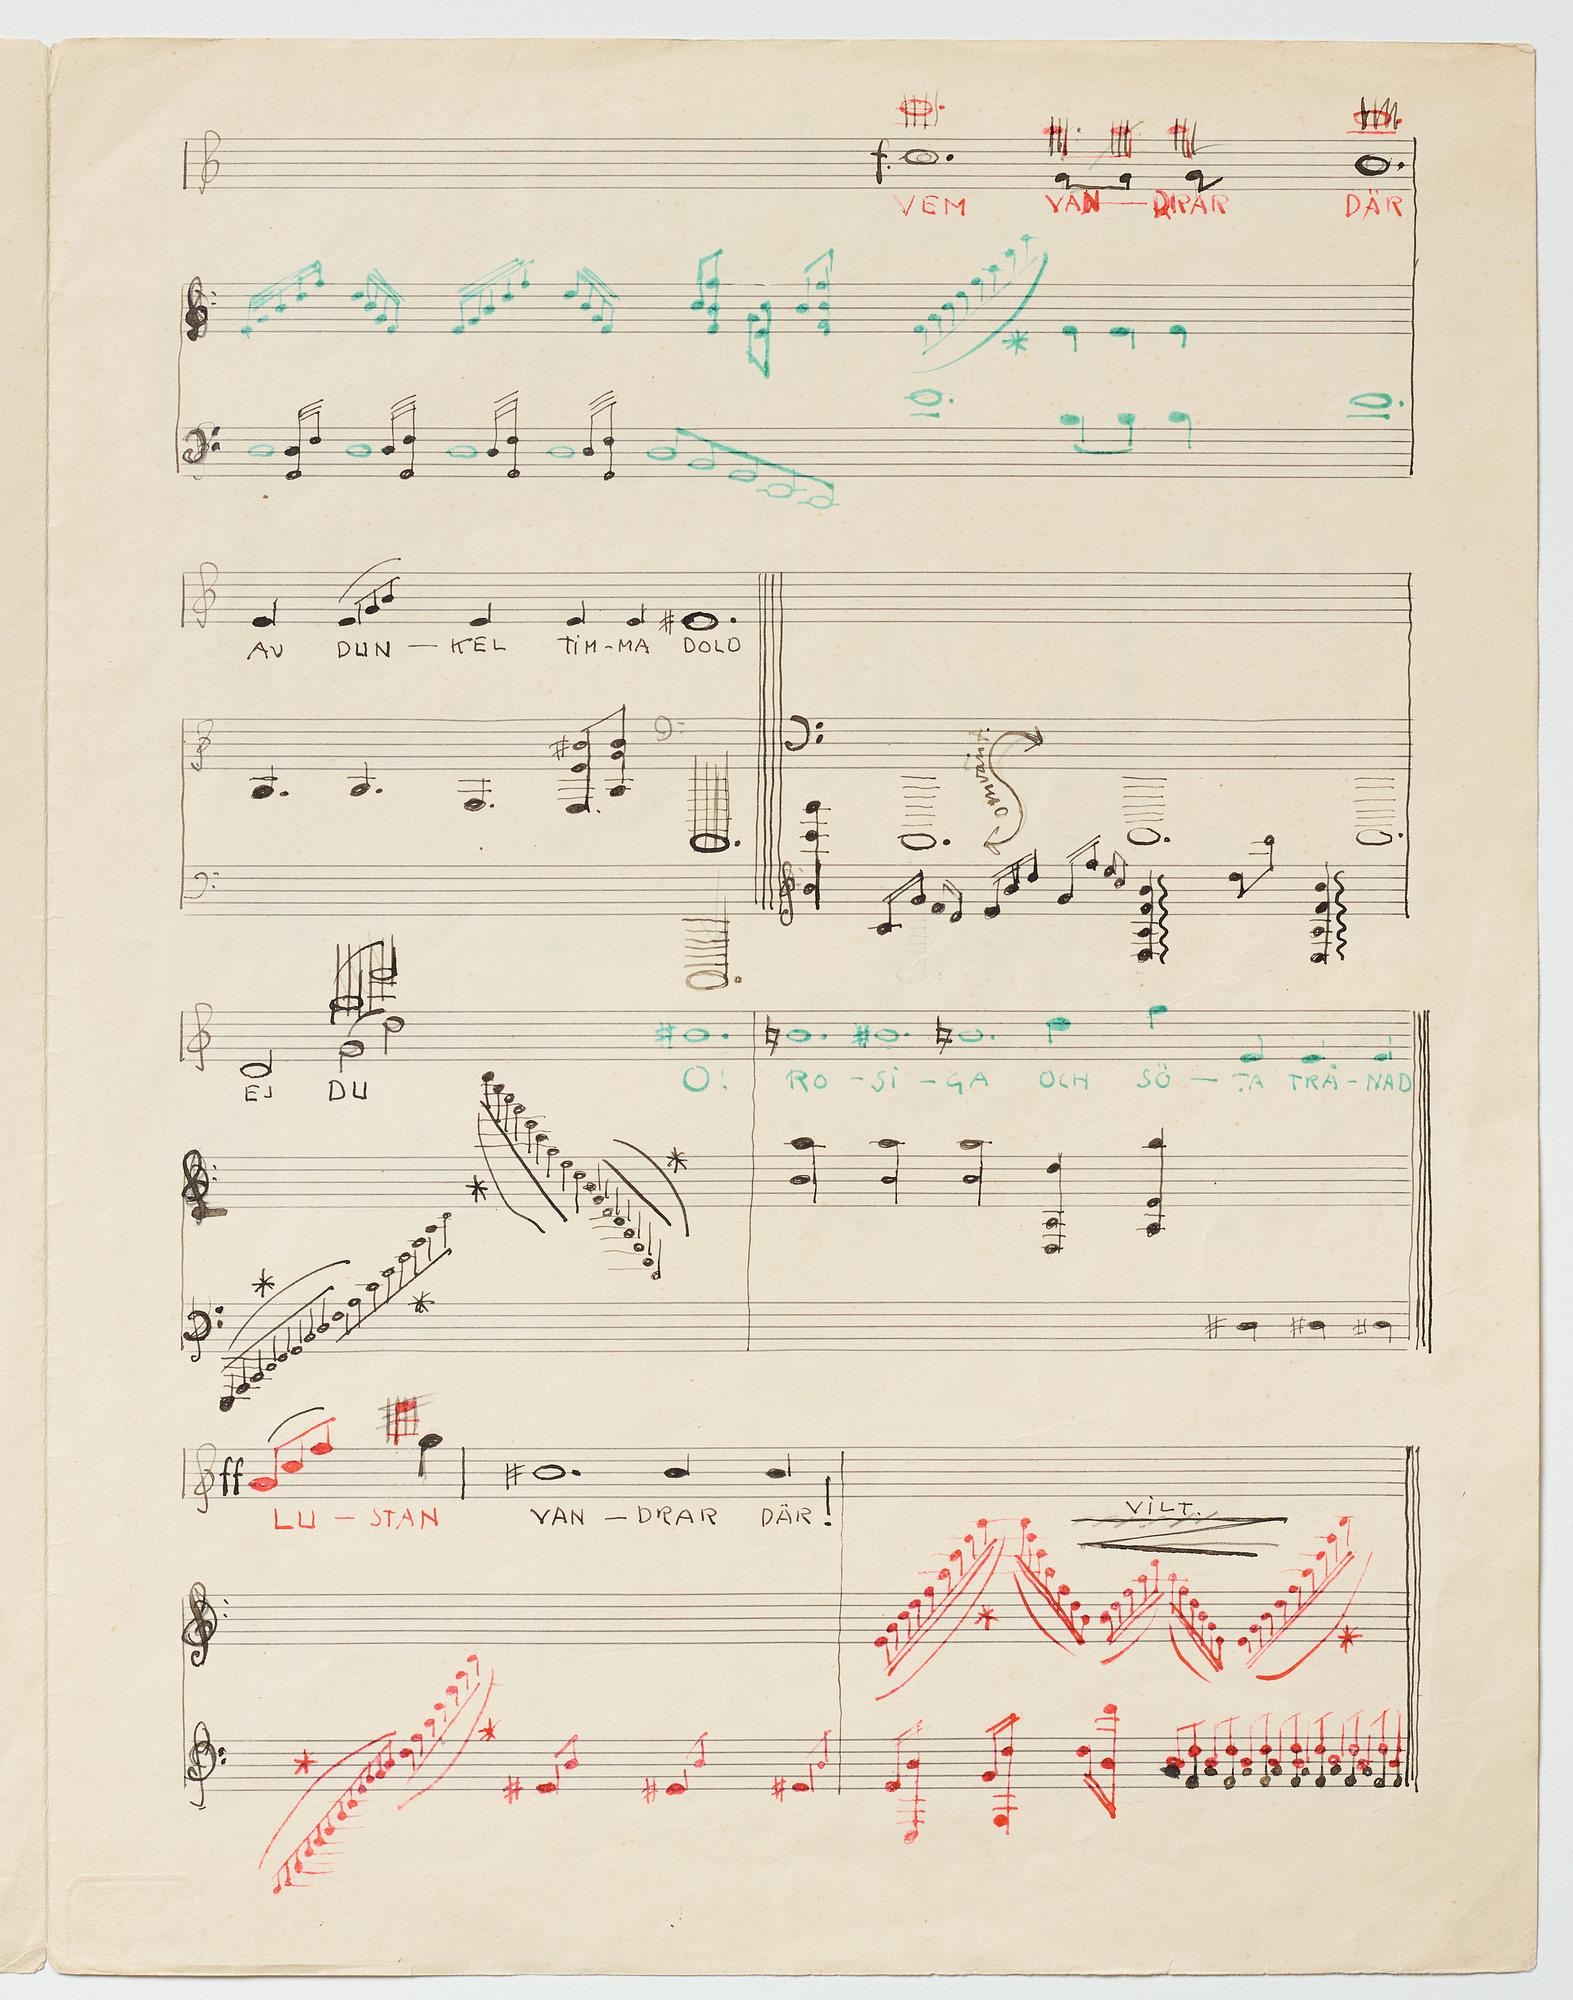 f.
VEM VAN — DRAR DÄR
AV DUN — KEL TIM-MA DOLD
EJ DU O! RO - SI - GA OCH SÖ — TA TRÄ - NAD
ff
LU — STAN VAN — DRAR DÄR!
VILT.